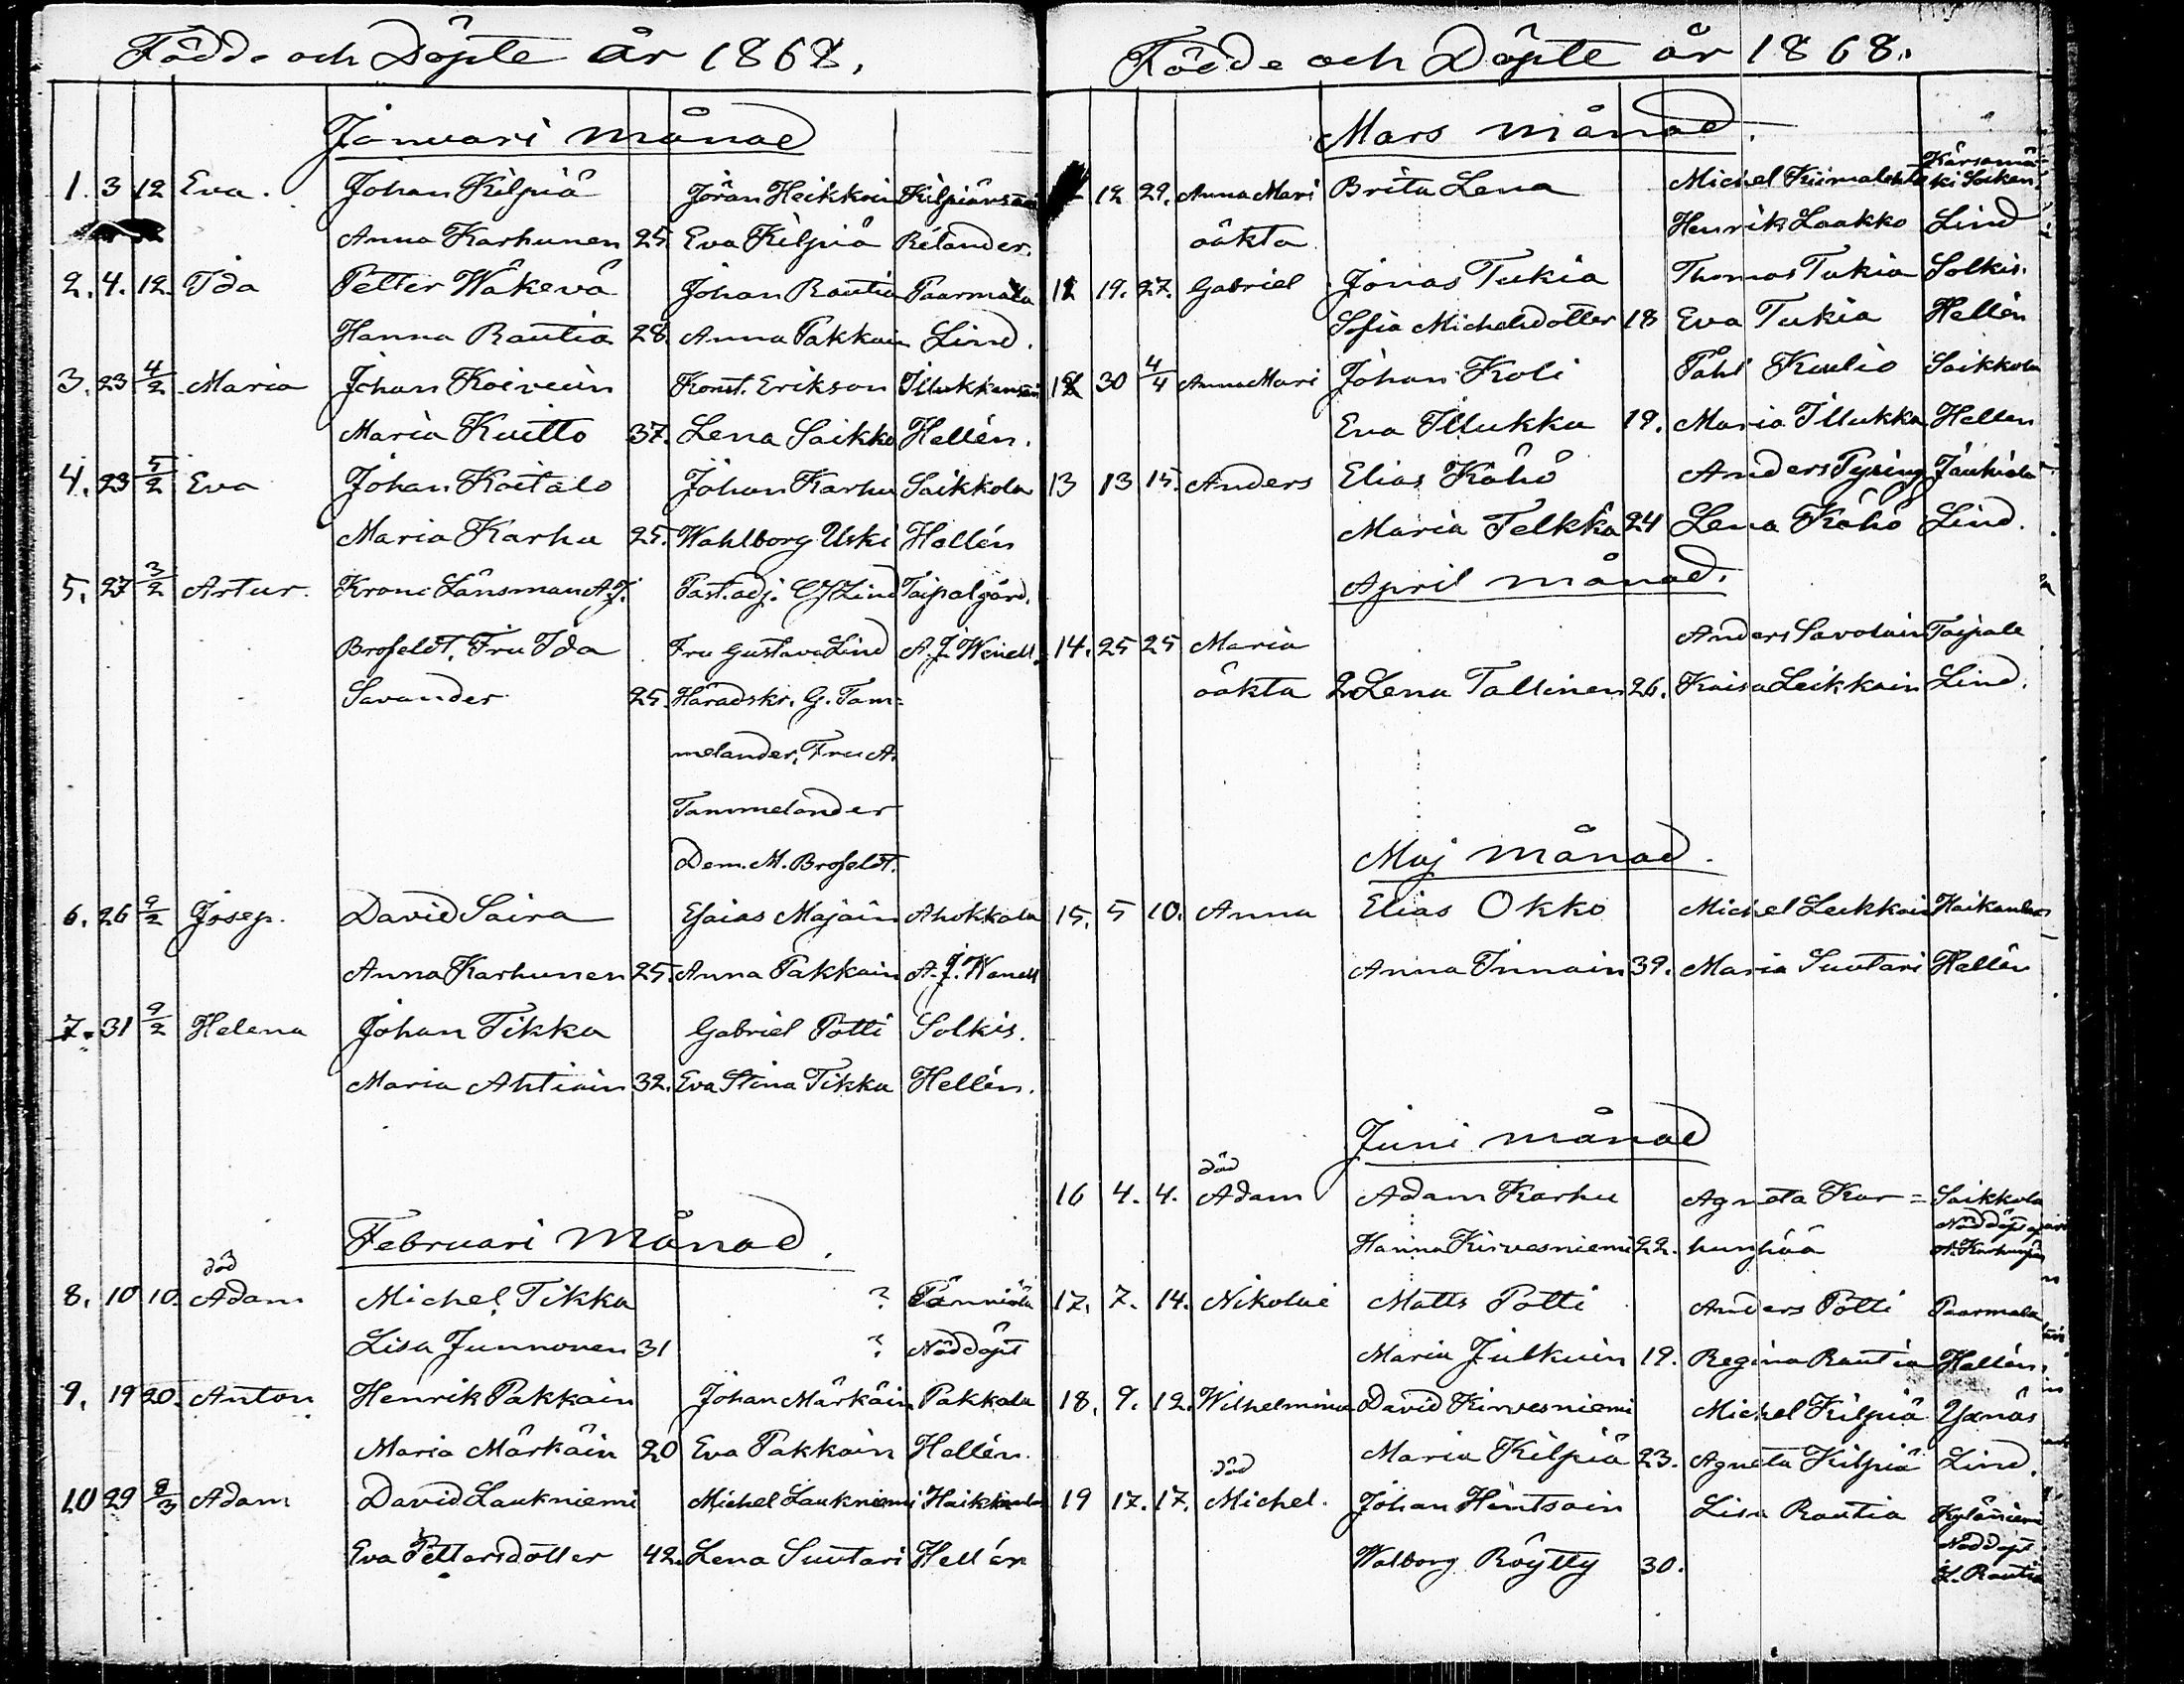 Födde och Döpte år 1868.
Januari månad
1. 3 12 Eva. Johan Kilpiä Jöran Heikkoin Kilpiänsaari
Anna Karhunen 25 Eva Kilpiä Relander.
2. 4. 12. Ida Petter Wäkevä Johan Rautia Paarmala
Hanna Rautia 28 Anna Pakkain Lind.
3. 23 4/2 Maria Johan Koivuin Konst. Erikson Illukkansaari
Maria Kuitto 37. Lena Saikko Hellén.
4. 23 5/2 Eva Johan Koitalo Johan Karhu Saikkola
Maria Karhu 25. Wahlborg Uski Hellén
5. 27 3/2 Artur. Krono Länsman A.J. Past. adj. CJ Lind Taipalgård.
Brofeldt, Fru Ida Fru Gustava Lind A.J. Winell.
Savander 25. Häradskr. G. Tam=
melander, Fru A.
Tammelander
Dem. M. Brofeldt.
6. 26 9/2 Josep. David Saira Esaias Majain Ahokkala
Anna Karhunen 25. Anna Pakkain A.J. Wenell
7. 31 9/2 Helena Johan Tikka Gabriel Potti Solkis.
Maria Ahtiain 32. Eva Stina Tikka Hellén.
Februari Månad.
död
8. 10 10. Adam Michel Tikka ? Pänniälä
Lisa Junnonen 31 ? Nöddöpt
9. 19 20. Anton Henrik Pakkain Johan Märkäin Pakkala
Maria Märkäin 20 Eva Pakkain Hellén.
10 29 9/3 Adam David Laukniemi Michel Laukniemi Haikkanlax
Eva Pettersdotter 42. Lena Suutari Hellén
Födde och Döpte år 1868.
Mars månad.
Kärsämä-
12 29. Anna Mari Brita Lena Michel ki Socken
oäkta Henrik Laakko Lind
12 19. 27. Gabriel Jonas Tukia Thomas Tukia Solkis.
Sofia Michelsdotter 18 Eva Tukia Hellén
30 4/4 Anna Mari Johan Koli Påhl Kaulio Saikkola
Eva Illukka 19. Maria Illukka Hellen
13 13 15. Anders Elias Köhö Anders Pysing Jauhiala
Maria Telkkä 24 Lena Köhö Lind.
April månad.
14. 25 25 Maria Anders Savolain Taipale
oäkta Lena Tallinen 26. Kaisa Leikkain Lind.
Maj månad.
15. 5 10. Anna Elias Okko Michel Leikkain Haikanlax
Anna Innain 39. Maria Suutari Hellén
Juni månad
död
16 4. 4. Adam Adam Karhu Agneta Kar= Saikkola
Nöddöpt af
Hanna Kirvesniemi 22. hunpää A. Karhunpää
17. 7. 14. Nikolai Matts Potti Anders Potti Paarmala
Maria Julkuin 19. Regina Rautia Hellén.
18. 9. 12. Wilhelmina David Kirvesniemi Michel Kilpiä Yxnäs
Maria Kilpiä 23. Agneta Kilpiä Lind.
död
19 17. 17. Michel. Johan Hintsain Lisa Rautia Kyläniemi
Nöddöpt
Walborg Röytty 30. L. Rautia